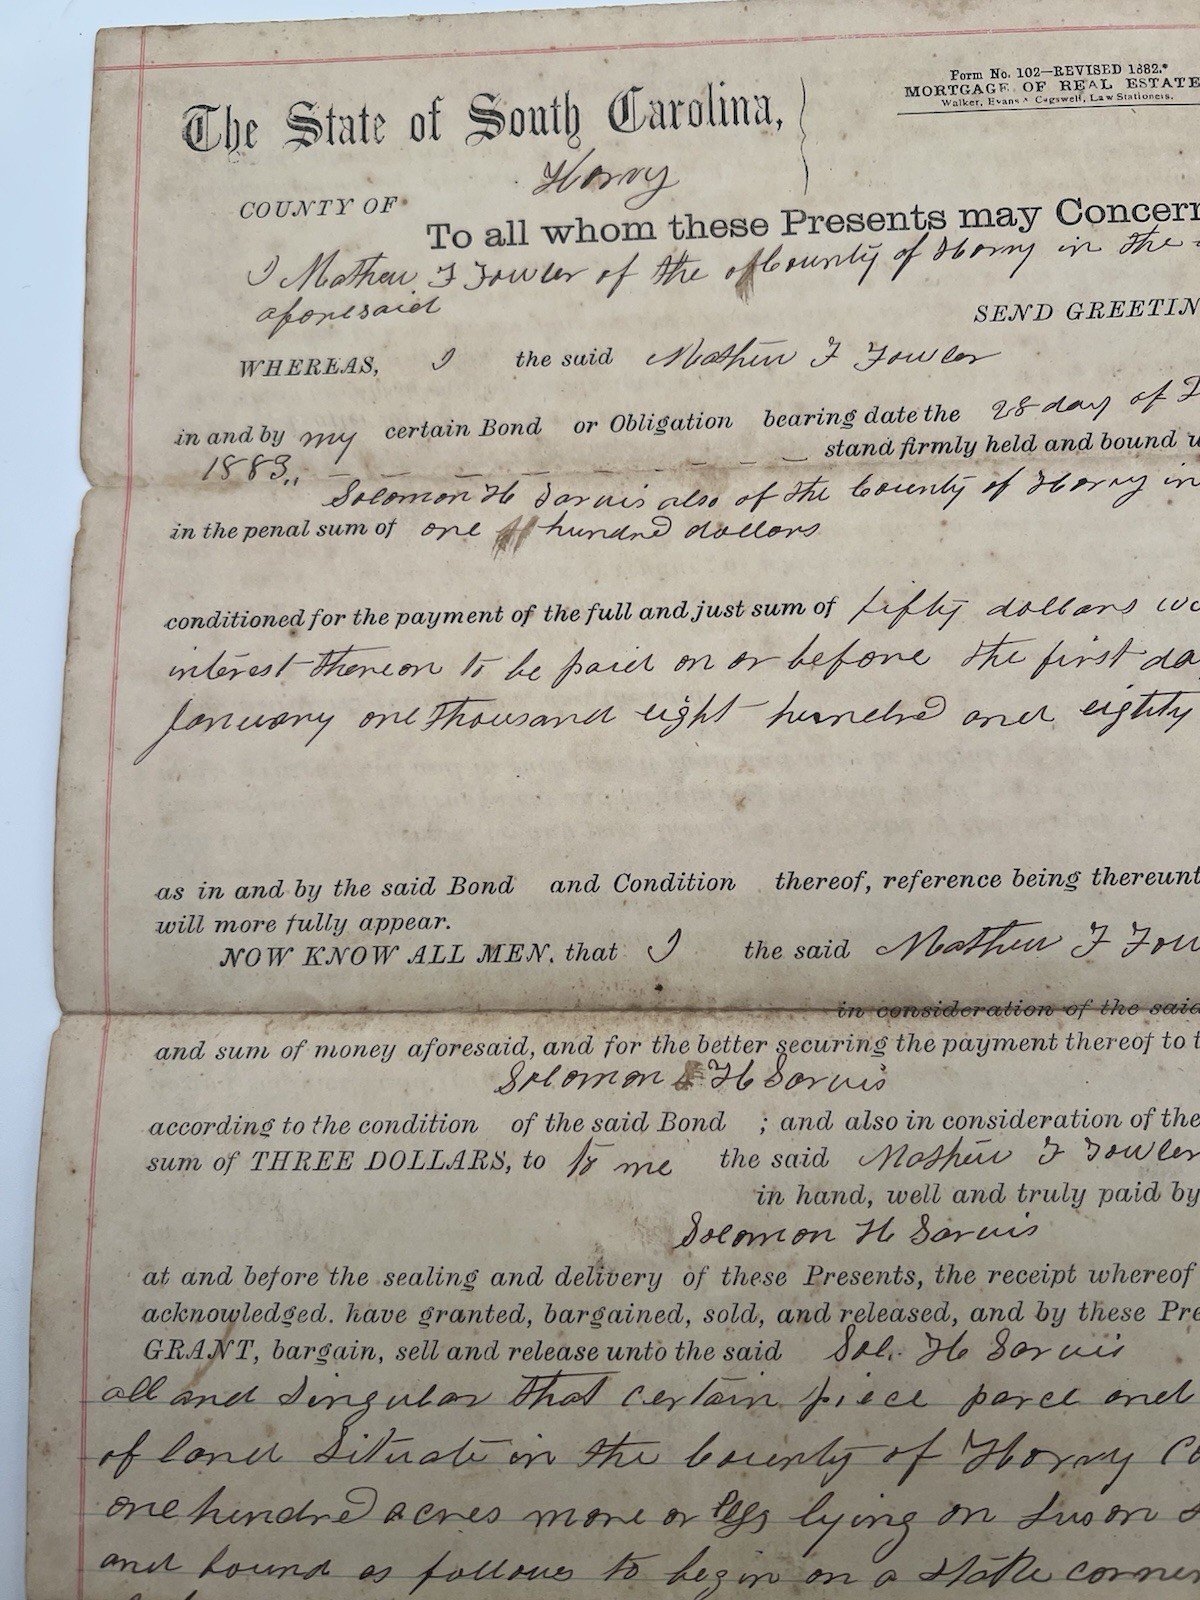 Form No. 102—REVISED 1882.*
MORTGAGE OF REAL ESTATE
Walker, Evans & Cogswell, Law Stationers.
The State of South Carolina,
Horry
COUNTY OF
To all whom these Presents may Concern
I Mathew F Fowler of the County of Horry in the
aforesaid
SEND GREETIN
WHEREAS, I the said Mathew F Fowler
in and by my certain Bond or Obligation bearing date the 28 day of
1883,, stand firmly held and bound
Solomon H Sarvis also of the County of Horry in
in the penal sum of one hundred dollars
conditioned for the payment of the full and just sum of fifty dollars
interest thereon to be paid on or before the first da
January one thousand eight hundred and eighty
as in and by the said Bond and Condition thereof, reference being thereunt
will more fully appear.
NOW KNOW ALL MEN, that I the said Mathew F Fow
in consideration of the said
and sum of money aforesaid, and for the better securing the payment thereof to t
Solomon H Sarvis
according to the condition of the said Bond ; and also in consideration of the
sum of THREE DOLLARS, to to me the said Mathew F Fowler
in hand, well and truly paid by
Solomon H Sarvis
at and before the sealing and delivery of these Presents, the receipt whereof
acknowledged. have granted, bargained, sold, and released, and by these Pre
GRANT, bargain, sell and release unto the said Sol. H Sarvis
all and Singular that certain piece parcel and
of land Situate in the County of Horry Co
one hundred acres more or less lying on
and bound as follows to begin on a stake corner